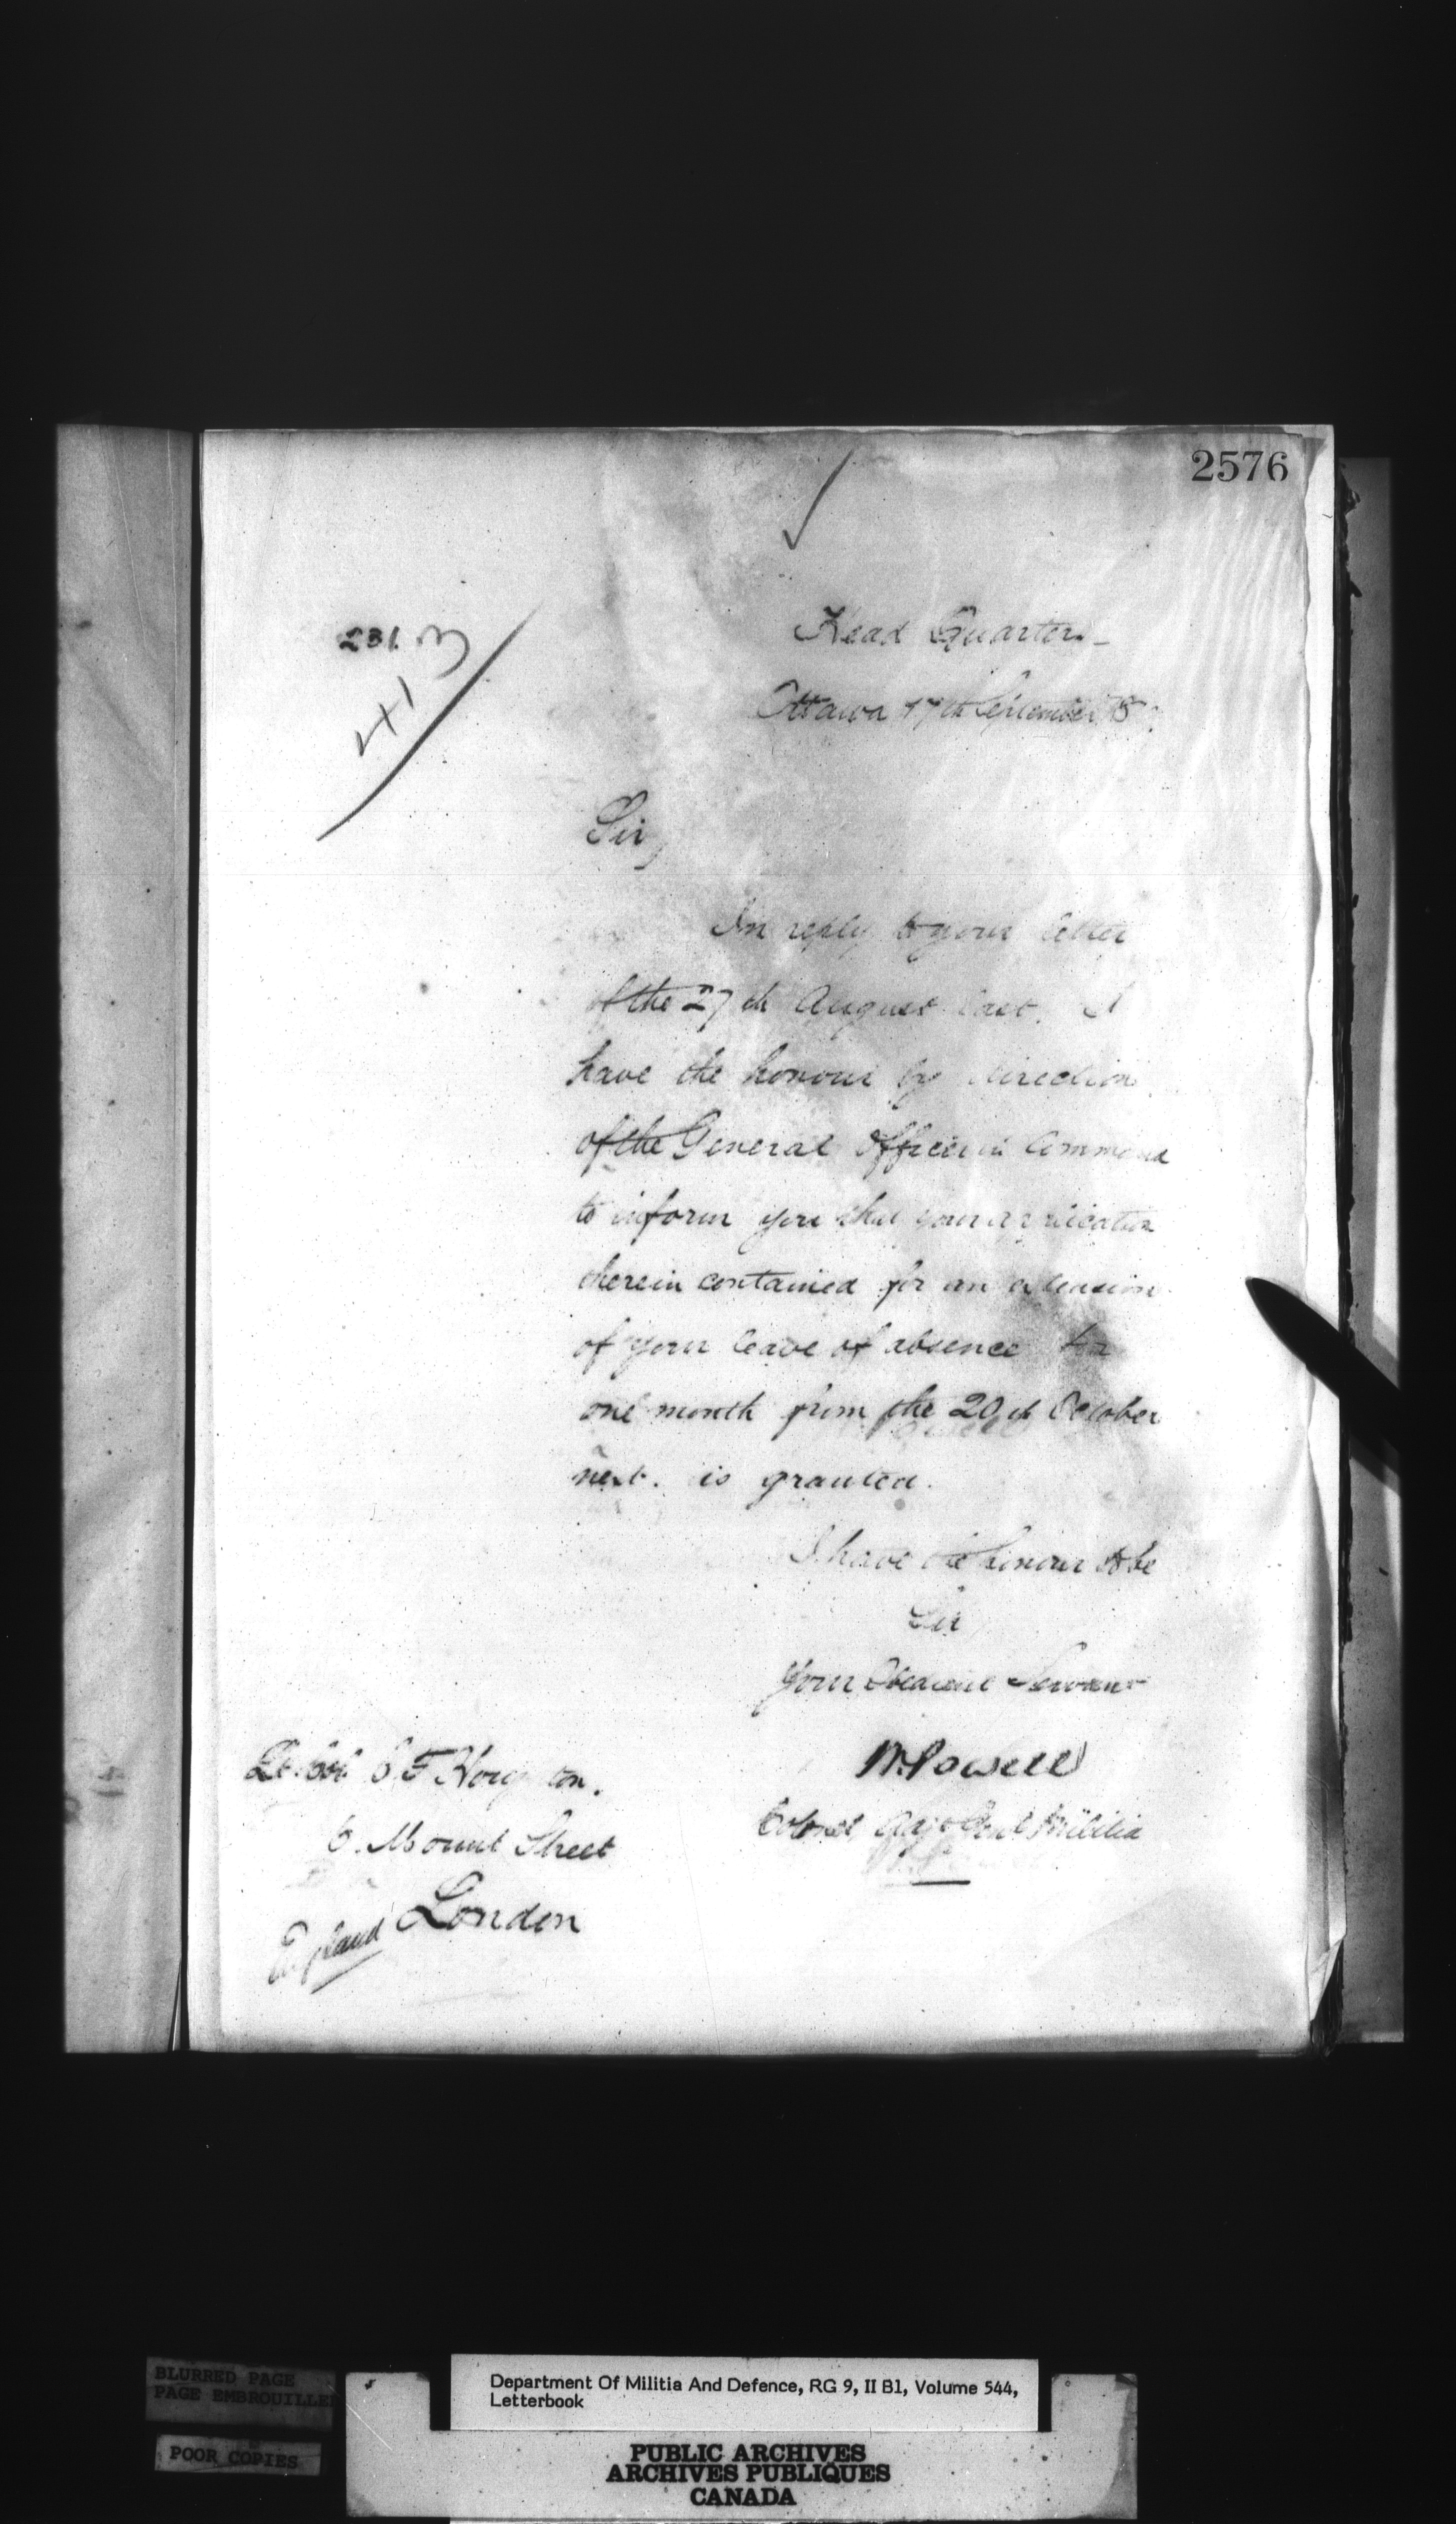 2576
231. M
41
Head Quarters
Ottawa 17th September
Sir,
In reply to your letter
of the 27th August last. I
have the honour by direction
of the General Officer in Command
to inform you that your application
therein contained for an extension
of your leave of absence for
one month from the 20th October
next. is granted.
I have the honour to be
Sir
Your Obedient Servant
W. Powell
Colonel Adjt Genl Militia
Lt. Col.
6. Mount Street
London
England
Department Of Militia And Defence, RG 9, II B1, Volume 544,
Letterbook
BLURRED PAGE
PAGE EMBROUILLEE
POOR COPIES
PUBLIC ARCHIVES
ARCHIVES PUBLIQUES
CANADA